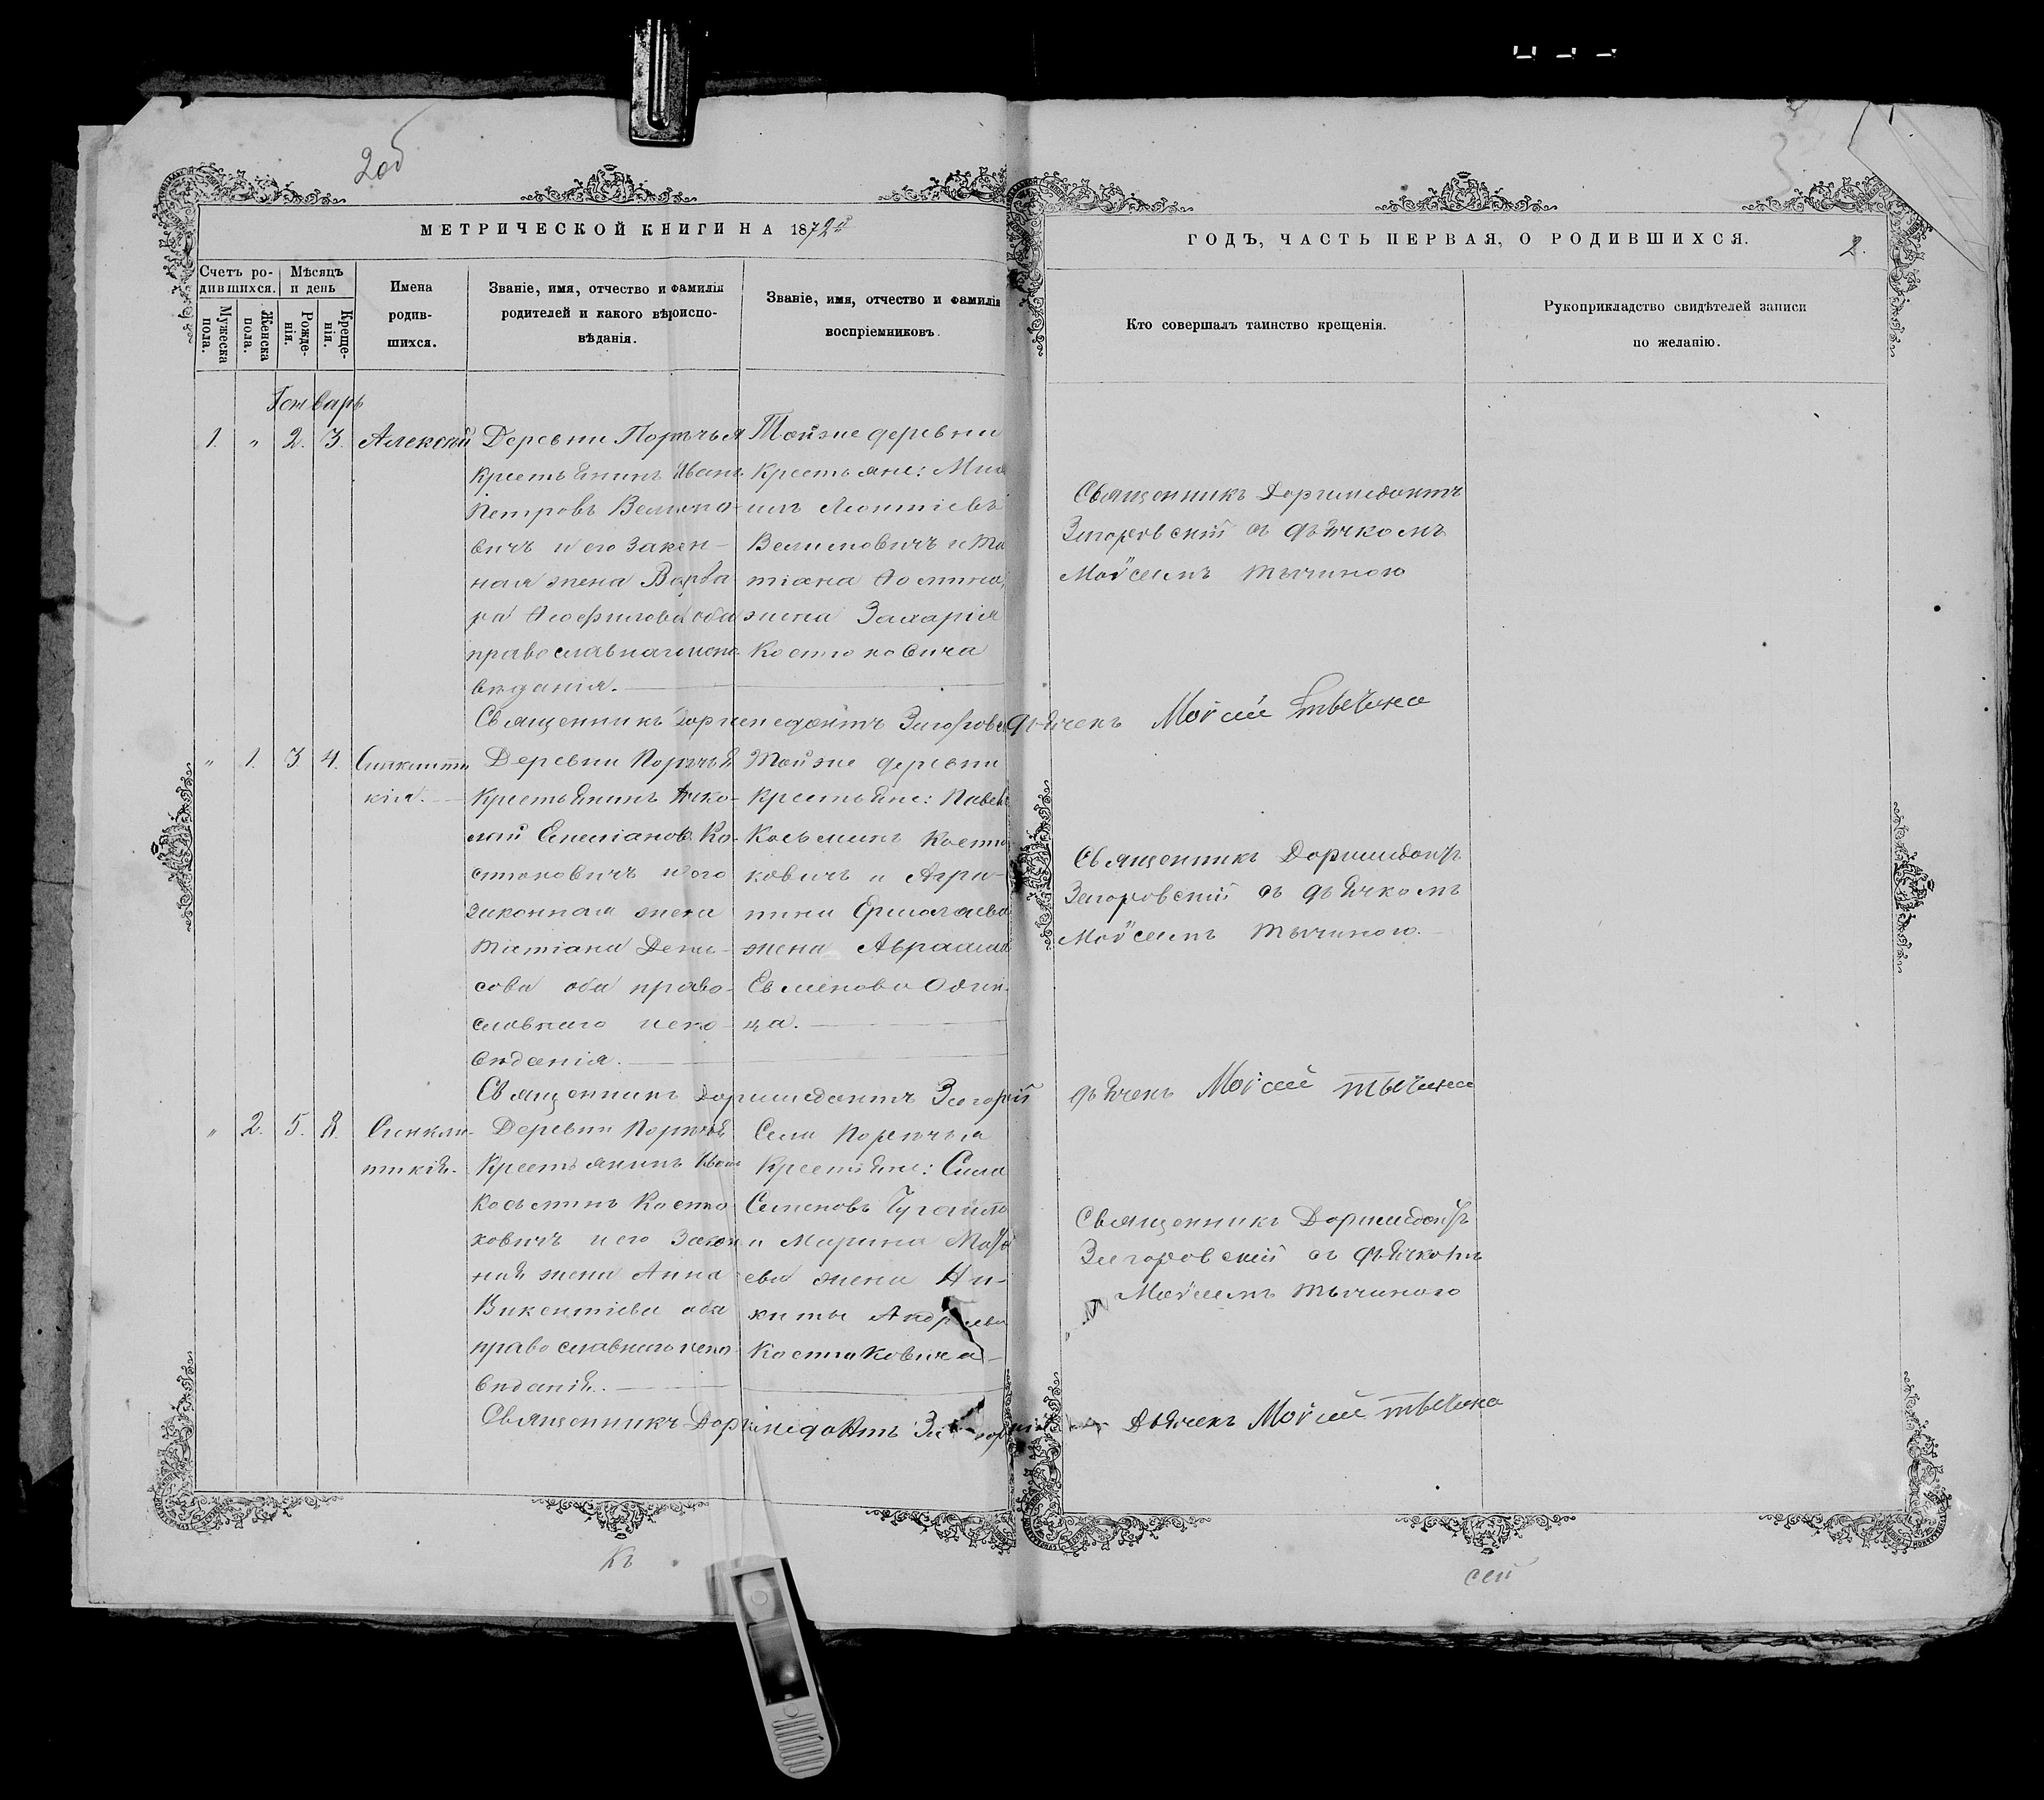 2об
3
МЕТРИЧЕСКОЙ КНИГИ НА 1872й
ГОДЪ, ЧАСТЬ ПЕРВАЯ, О РОДИВШИХСЯ.
2.
Счетъ ро-
дившихся.
Мѣсяцъ
и день
Мужеска
пола.
Женска
пола.
Рожде-
нія.
Креще-
нія.
Имена
родив-
шихся.
Званіе, имя, отчество и фамилія
родителей и какого вѣроиспо-
вѣданія.
Званіе, имя, отчество и фамилія
воспріемниковъ.
Кто совершалъ таинство крещенія.
Рукоприкладство свидѣтелей записи
по желанію.
Генварь
1. " 2. 3.
Алексѣй
Деревни Порѣчья
крестьянинъ Иванъ
Петровъ Велико-
вичъ и его закон-
ная жена Варва
ра Ѳеофилова оба
православнаго испо-
вѣданія.
Тойже деревни
крестьяне:
Леонтіевъ
и Та
тіана Ѳомина,
жена Захарія
Костюковича
Священникъ Доримедонтъ
Загоровскій съ дьячкомъ
Мойсеемъ Тычиною
Священникъ Доримедонтъ Загоровск
дьячекъ Мойсей Тычина
" 1. 3 4.
Синклити
кія.
Деревни Порѣчья
крестьянинъ Нико-
лай Емеліановъ Ко-
стюковичъ и его
законная жена
Татіана Дени-
сова оба право-
славнаго испо-
вѣданія.
Тойже деревни
крестьяне: Павелъ
Косьминъ Костю
ковичъ и Агри-
пина Ермолаева
жена Авраама
Евменова Один-
ца.
Священникъ Доримедонтъ
Загоровскій съ дьячкомъ
Мойсеемъ Тычиною.
Священникъ Доримедонтъ
дьячекъ Мойсей Тычина
" 2. 5. 8.
Синкли-
тикія.
Деревни Порѣчья
Крестьянинъ Иванъ
Косьминъ Костю
ковичъ и его закон
ная жена Анна
Викентіева оба
православнаго испо-
вѣданія.
Села Порѣчья
Крестьяне: Сила
Семеновъ
и Марина
ева жена Ни-
киты Андреева
Костюковича
Священникъ Доримедонтъ
Загоровскій съ дьячкомъ
Мойсеемъ Тычиною
Священникъ Доримедонтъ
Дьячекъ Мойсей Тычина
Къ
сей